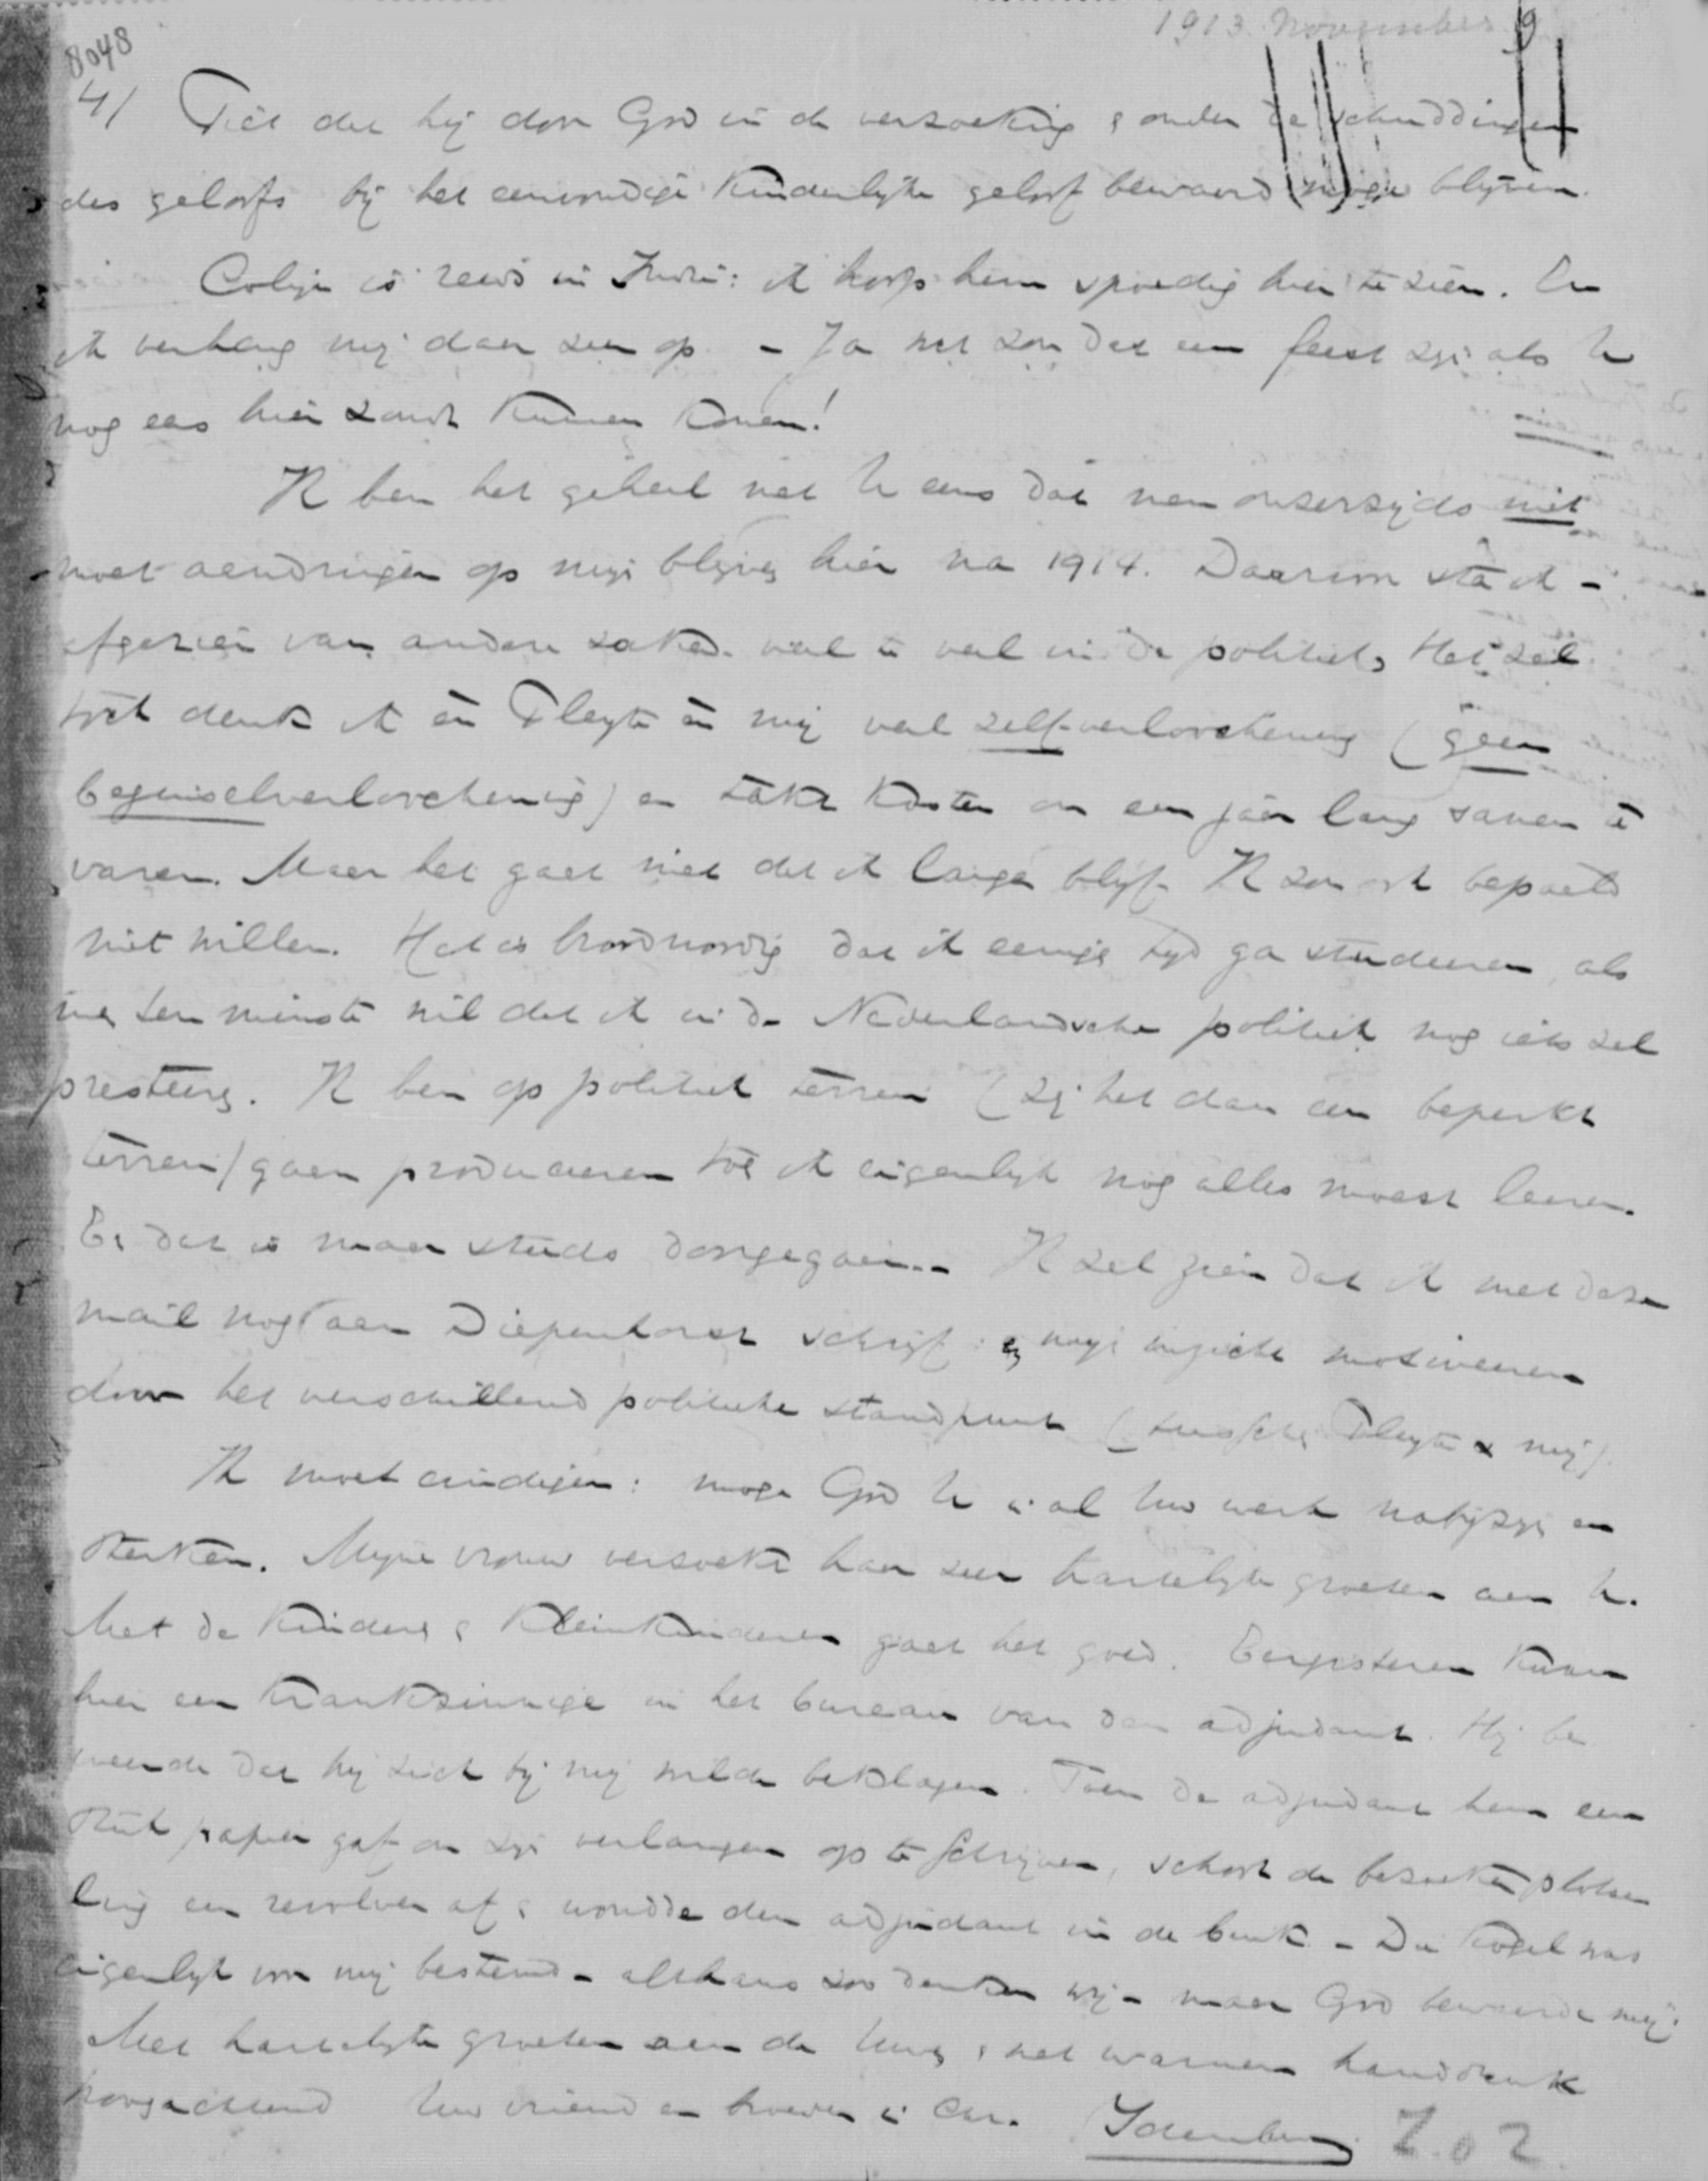 1913 November 9
8048
4/ Piet dat hij door God in de verzoeking & onder de schuddingen
des geloofs bij het eenvoudige kinderlijke geloof bewaard moge blijven.
Colijn is reeds in Indië: ik hoop hem spoedig hier te zien. En
ik verheug mij daar zeer op. – Ja wat zou dat een feest zijn als U
nog eens hier zoudt kunnen komen!
Ik ben het geheel met U eens dat men onzerzijds niet
moet aandringen op mijn blijven hier na 1914. Daarvoor sta ik –
afgezien van andere zaken – veel te veel in de politiek. Het zal
toch denk ik én Pleyte én mij veel zelf-verloochening (geen
beginselverloochening) en takt kosten om een jaar lang samen te
varen. Maar het gaat niet dat ik langer blijf. Ik zou ook bepaald
niet willen. Het is broodnoodig dat ik eenige tijd ga studeeren, als
men ten minste wil dat ik in de Nederlandsche politiek nog iets zal
presteeren. Ik ben op politiek terrein (zij het dan een beperkt
terrein) gaan produceeren toe ik eigenlijk nog alles moest leeren.
En dat is maar steeds doorgegaan.– Ik zal zien dat ik met deze
mail nog aan Diepenhorst schrijf & mijn inzicht motiveeren
door het verschillend politieke standpunt (tusschen Pleyte & mij).
Ik moet eindigen: moge God U in al Uw werk nabij zijn en
sterken. Mijne vrouw verzoekt haar zeer hartelijke groeten aan U.
Met de kinderen & kleinkinderen gaat het goed. Eergisteren kwam
hier een krankzinnige in het bureau van den adjudant. Hij be
weerde dat hij zich bij mij wilde beklagen. Toen de adjudant hem een
stuk papier gaf om zijn verlangen op te schrijven, schoot de bezoeker plotse
ling een revolver af & wondde den adjudant in de buik – Die kogel was
eigenlijk voor mij bestemd – althans zoo denken wij – maar God bewaarde mij.
Met hartelijke groeten aan de Uwen & met warmen handdruk
hoogachtend Uw vriend en broeder in Chr. Idenburg Z.O.Z.